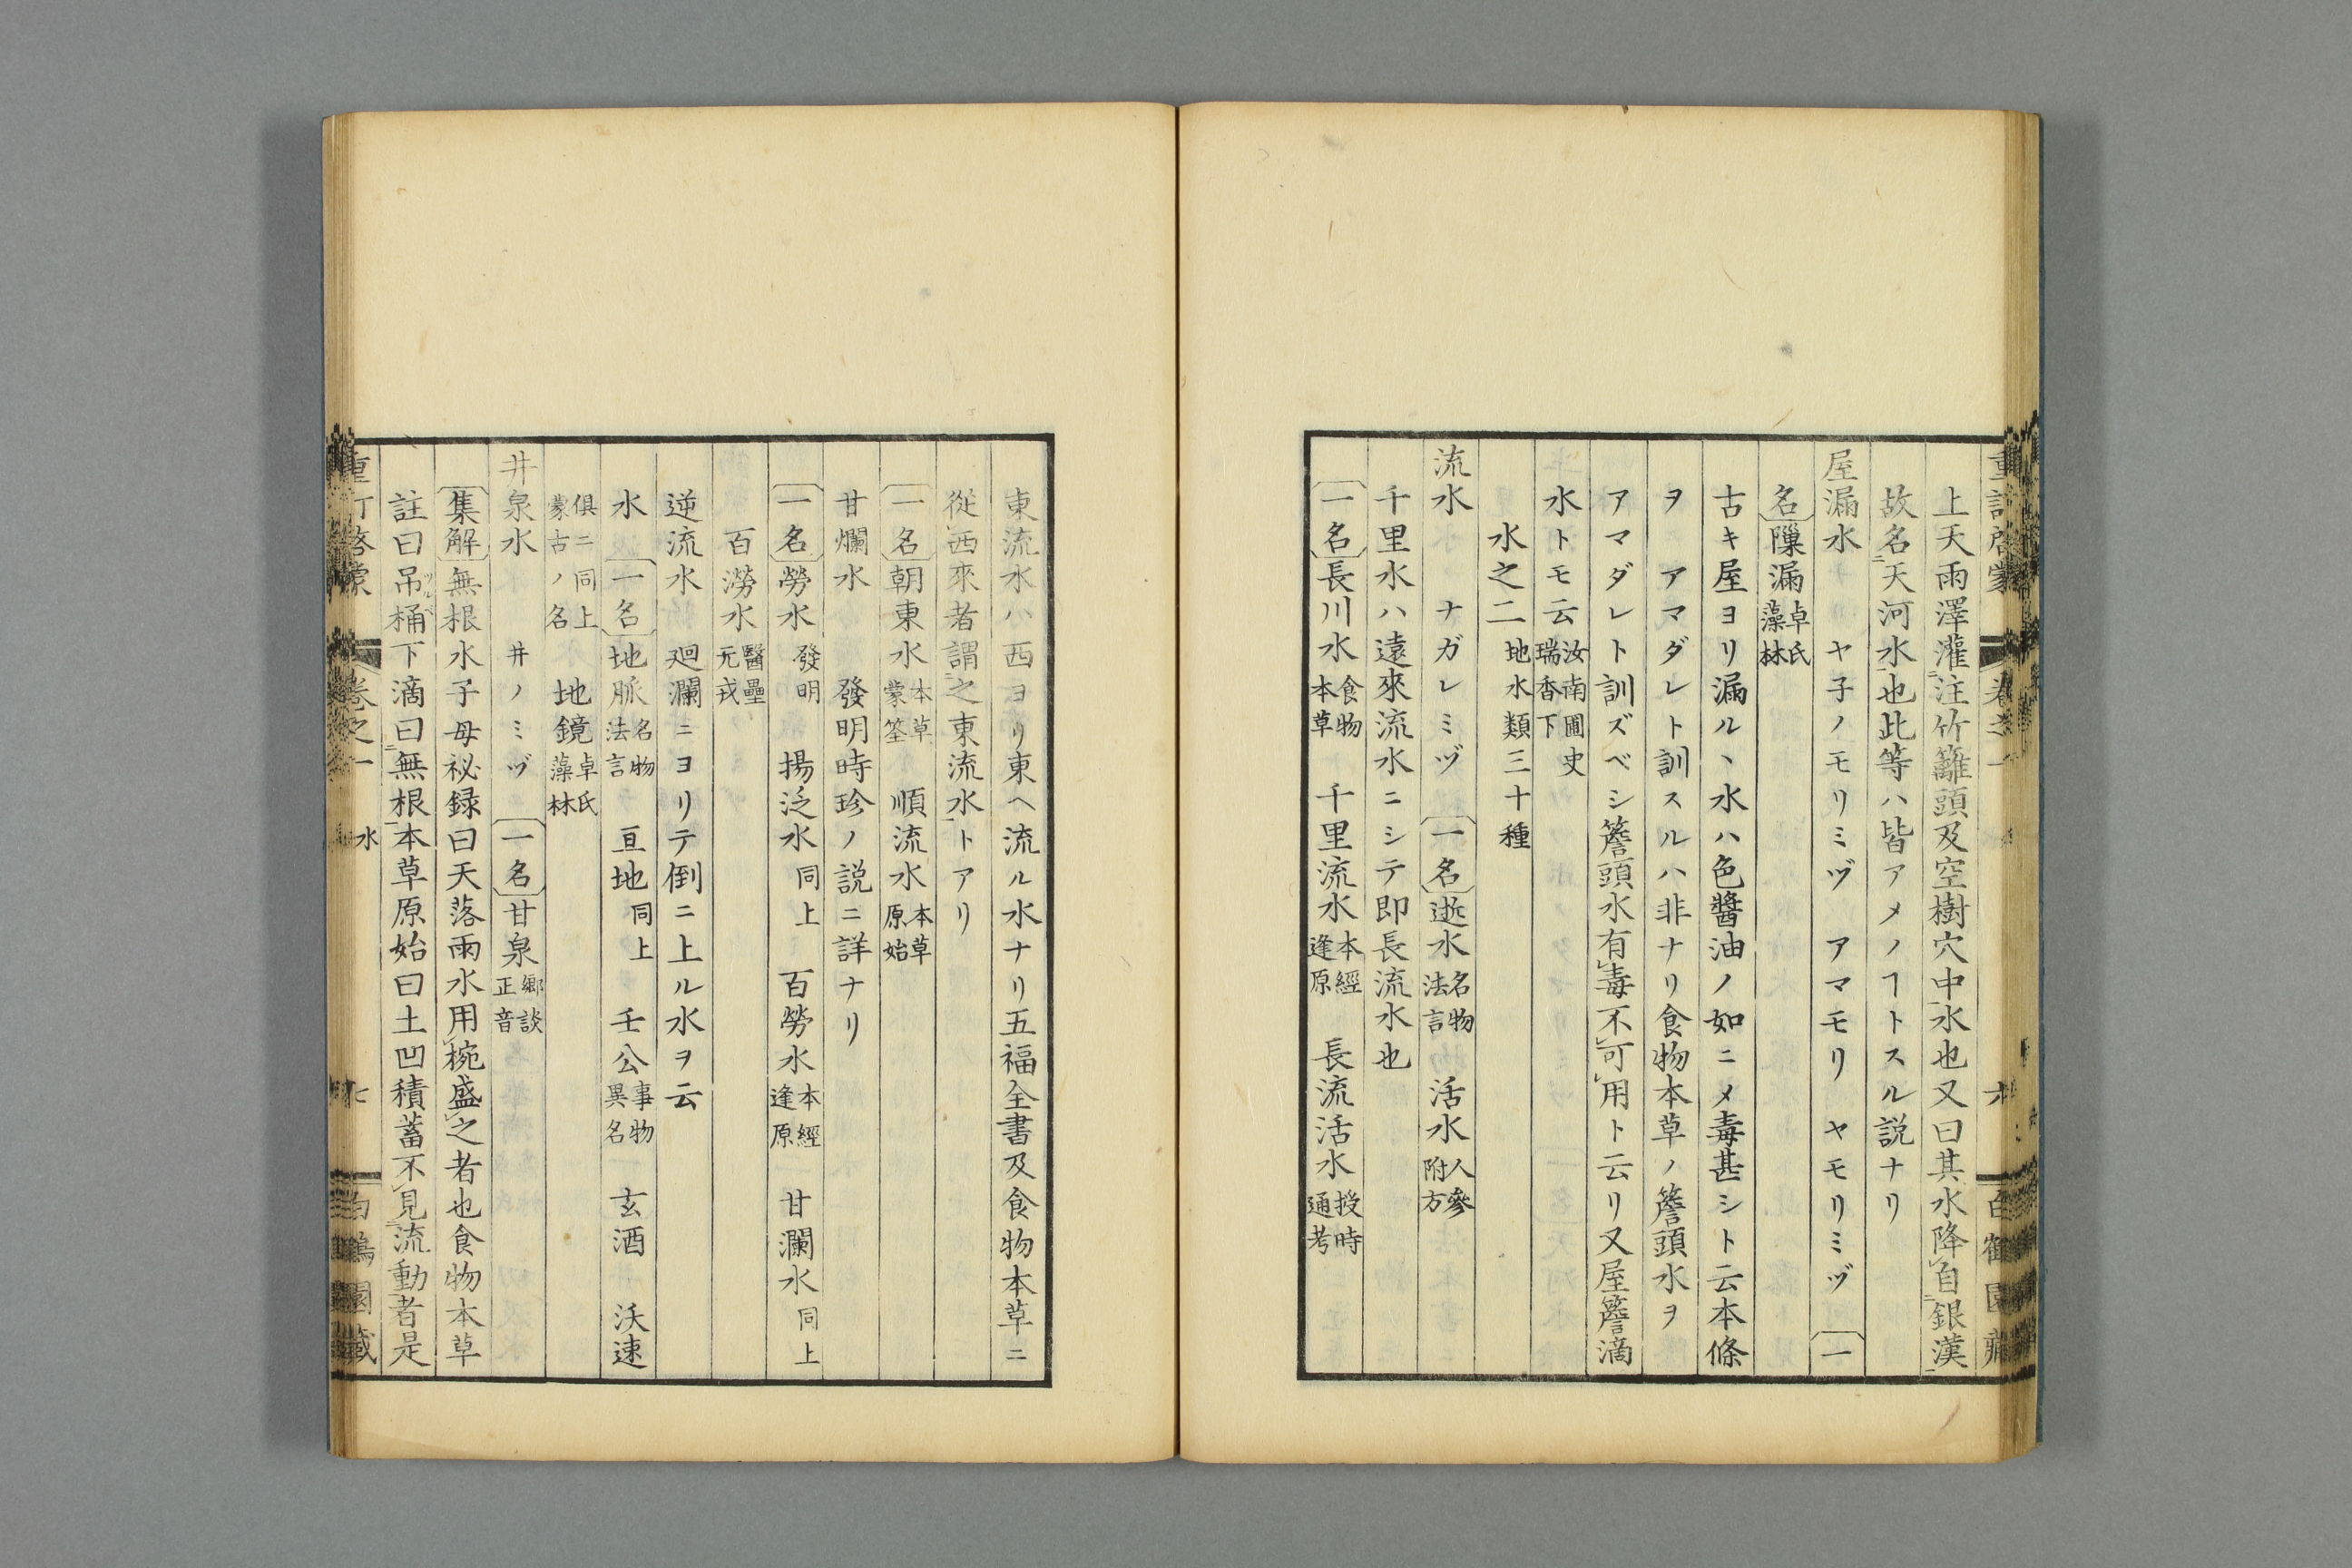 上天雨澤灌注竹籬頭及空樹穴中水也又曰其水降自銀漢
故名天河水也此等ハ皆アメノヿトスル説ナリ
屋漏水 ヤ子ノモリミヅ アマモリ ヤモリミヅ 一
名 𨻶漏 卓氏藻林
古キ屋ヨリ漏ル丶水ハ色醬油ノ如ニメ毒甚シト云本條
ヲ アマダレト訓スルハ非ナリ食物本草ノ簷頭水ヲ
アマダレト訓ズベシ簷頭水有毒不可用ト云リ又屋簷滴
水トモ云 汝南圃史瑞香下
水之二 地水類三十種
流水 ナガレミヅ 一名 逝水 名物法言 活水 人參附方
千里水ハ遠來流水ニシテ即長流水也
一名 長川水 食物本草 千里流水 本經逢原 長流活水 授時通考
東流水ハ西ヨリ東ヘ流ル水ナリ五福全書及食物本草ニ
從西來者謂之東流水トアリ
一名 朝東水 本草蒙筌 順流水 本草原始
甘爛水 發明時珍ノ説ニ詳ナリ
一名 勞水 發明 揚泛水 同上 百勞水 本經逢原 甘瀾水 同上
百澇水 醫壘元戎
逆流水 廻瀾ニヨリテ倒ニ上ル水ヲ云
水 一名 地脈 名物法言 亘地 同上 壬公 事物異名 玄酒 沃速
俱ニ同上蒙古ノ名 地鏡 卓氏藻林
井泉水 井ノミヅ 一名 甘泉 郷談正音
集解 無根水子母祕録曰天落雨水用椀盛之者也食物本草
註曰吊桶下滴曰無根本草原始曰土凹積蓄不見流動者是
卷之一 水 七